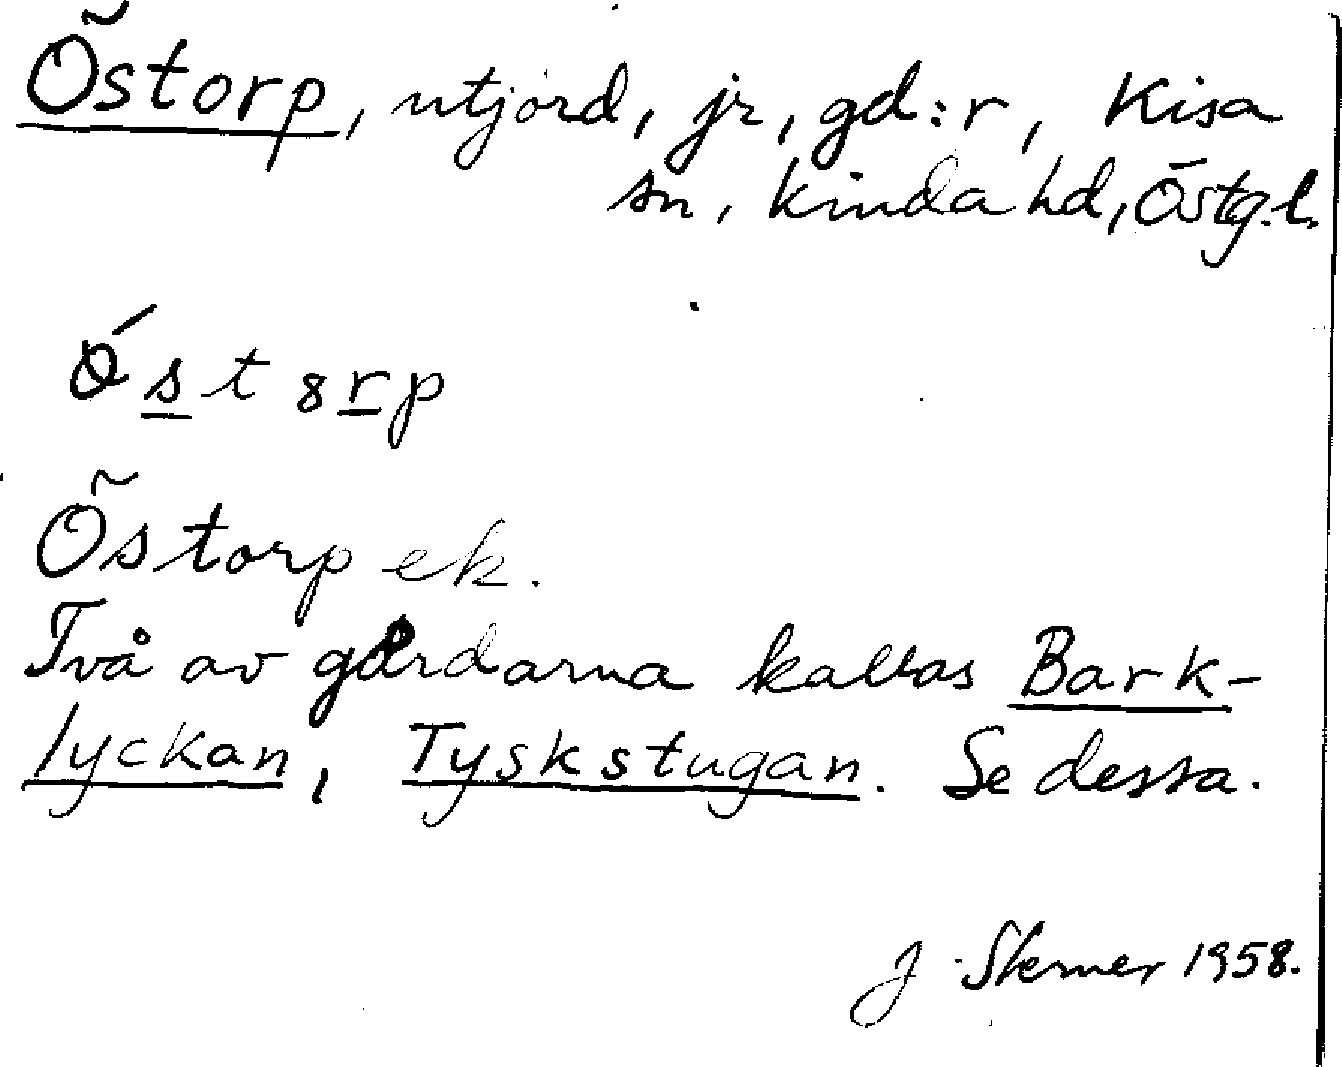 Östorp, utjord, jr, gd:r, Kisa
sn, Kinda hd, Östg.l.
ǿ s t 8 r p
Östorp ek.
Två av gårdarna kallas Bark-
lyckan, Tyskstugan. Se dessa.
J. Sterner 1958.